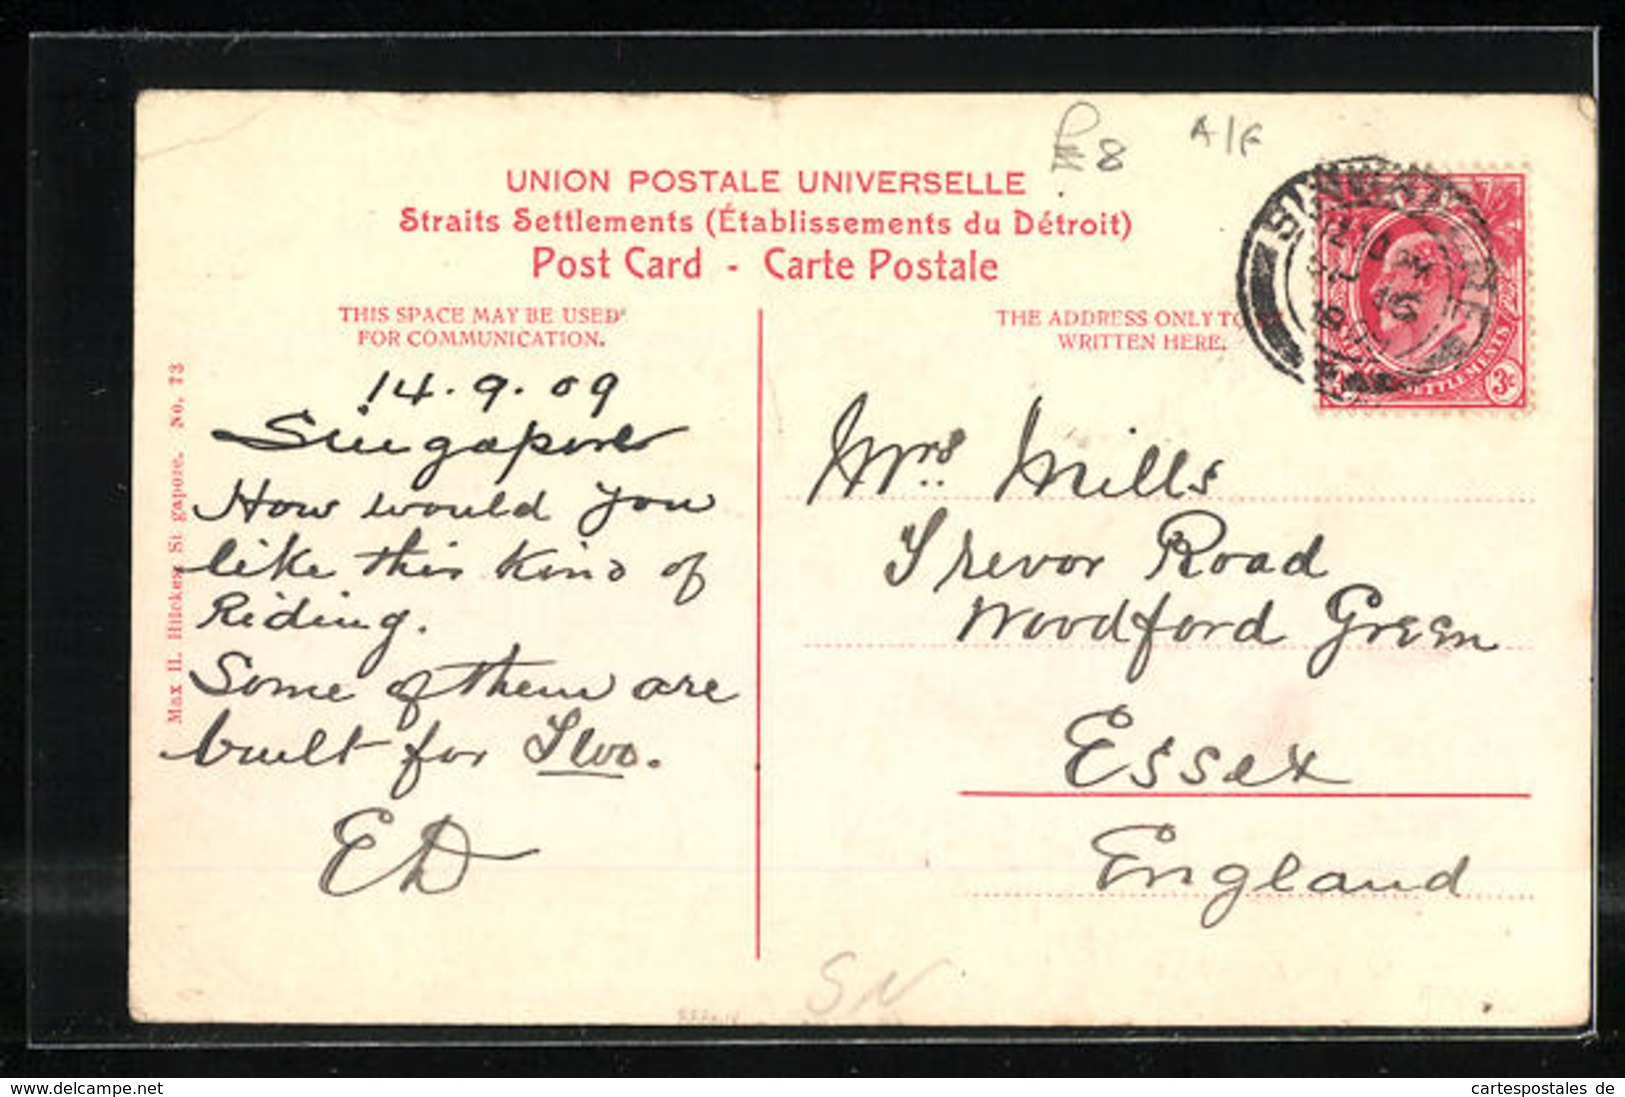 A/F
8
UNION POSTALE UNIVERSELLE
Straits Settlements (Établissements du Détroit)
Post Card - Carte Postale
THIS SPACE MAY BE USED
FOR COMMUNICATION.
14.9.09
Singapore
How would you
like this kind of
Riding.
Some of them are
built for Two.
ED
Max H. Hilckes, Si gapore. No. 73
THE ADDRESS ONLY TO
WRITTEN HERE.
Mrs. Mills
Trevor Road
Woodford Green
Essex
England
SINGAPORE
SETTLEMENTS
3c
SN
www.delcampe.net
cartespostales de